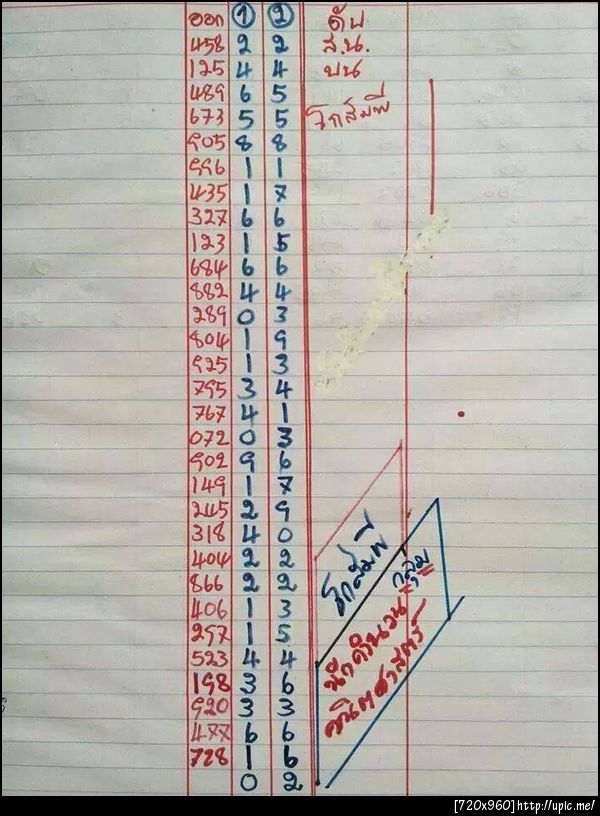 ออก ① ② ดับ
458 2 2 ส.น.
125 4 4 บน
489 6 5
673 5 5 โกสัมพี
905 8 8
996 1 1
435 1 7
327 6 6
123 1 5
684 6 6
882 4 4
289 0 3
804 1 9
925 1 3
795 3 4
767 4 1
072 0 3
902 9 6
149 1 7
245 2 9
318 4 0
404 2 2
866 2 2
406 1 3
297 1 5
523 4 4
198 3 6
920 3 3
477 6 6
728 1 6
0 2
โกสัมพี
กลุ่ม
นักคำนวน
คณิตศาสตร์
[720x960]http://upic.me/